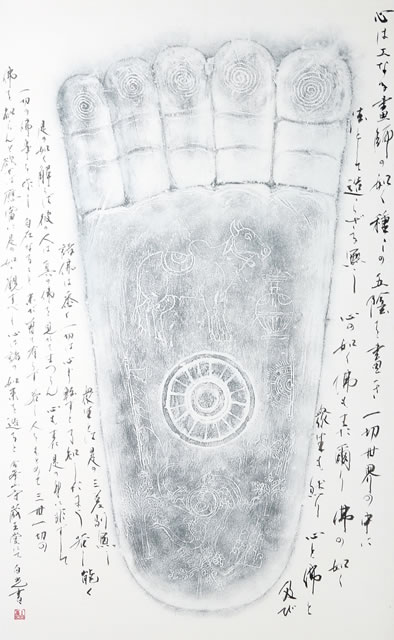 心は工なる畫師の如く種々の五陰を畫き 一切世界の中に
法として造らざる無し 心の如く佛も亦爾り 佛の如く
衆生も然り 心と佛と
及び
衆生と是の三差別無し
諸佛は悉く一切は心より轉ずと了知したまう 若し能く
是の如く解らば彼の人は真の佛を見たてまつらん 心も亦是れ身に非ずして
一切の佛事を作し自在なること未だ曾て有らず 若し人もとめて三世一切の
佛を知らんと欲せば應當に是の如く觀ずべし 心は諸の如来を造ると 蔵王堂にて 書